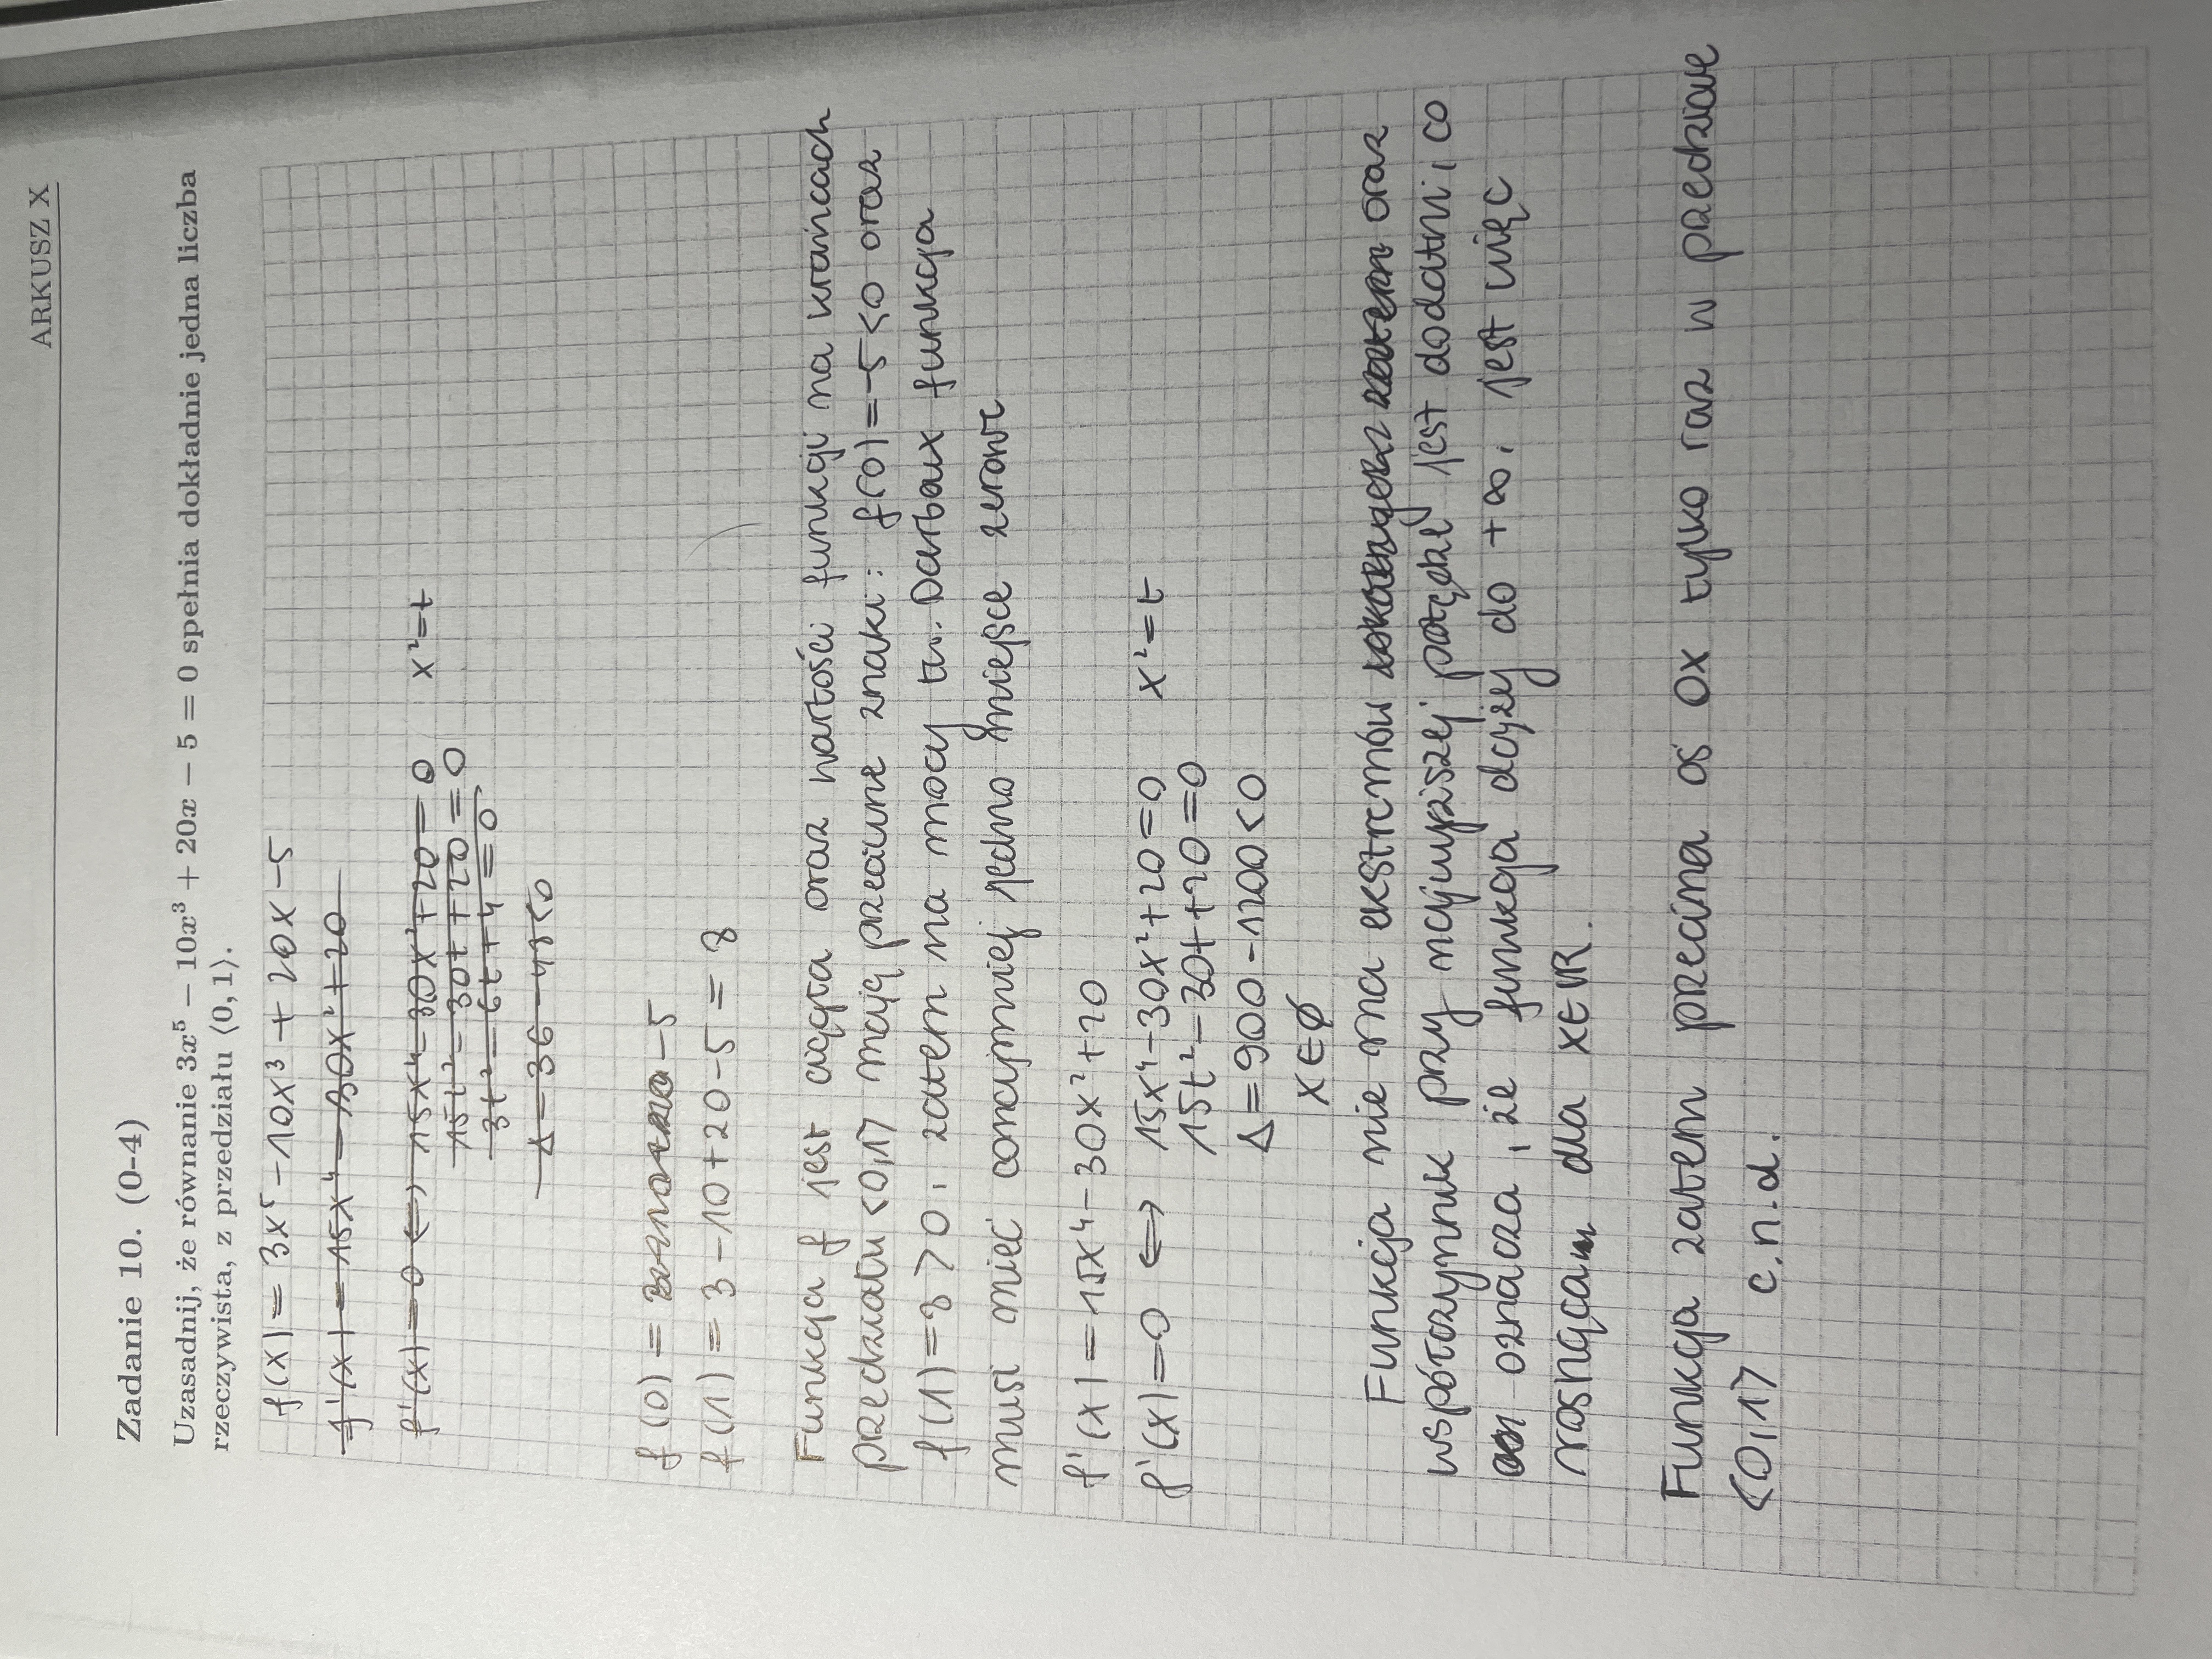 ARKUSZ X
Zadanie 10. (0-4)
Uzasadnij, że równanie 3x⁵ − 10x³ + 20x − 5 = 0 spełnia dokładnie jedna liczba
rzeczywista, z przedziału ⟨0, 1⟩.
f(x) = 3x⁵ − 10x³ + 20x − 5
f'(x) = 15x⁴ − 30x² + 20
f'(x) = 0 ⇔ 15x⁴ − 30x² + 20 = 0 x² = t
15t² − 30t + 20 = 0
3t² − 6t + 4 = 0
Δ = 36 − 48 < 0
f(0) = −5
f(1) = 3 − 10 + 20 − 5 = 8
Funkcja f jest ciągła oraz wartości funkcji na krańcach
przedziału <0,1> mają przeciwne znaki: f(0) = −5 < 0 oraz
f(1) = 8 > 0, zatem na mocy tw. Darboux funkcja
musi mieć conajmniej jedno miejsce zerowe
f'(x) = 15x⁴ − 30x² + 20
f'(x) = 0 ⇔ 15x⁴ − 30x² + 20 = 0 x² = t
15t² − 30t + 20 = 0
Δ = 900 − 1200 < 0
x ∈ ∅
Funkcja nie ma ekstremów oraz
współczynnik przy najwyższej potędze jest dodatni, co
oznacza, że funkcja dąży do +∞, jest więc
rosnąca dla x ∈ ℝ.
Funkcja zatem przecina oś OX tylko raz w przedziale
<0,1> c.n.d.